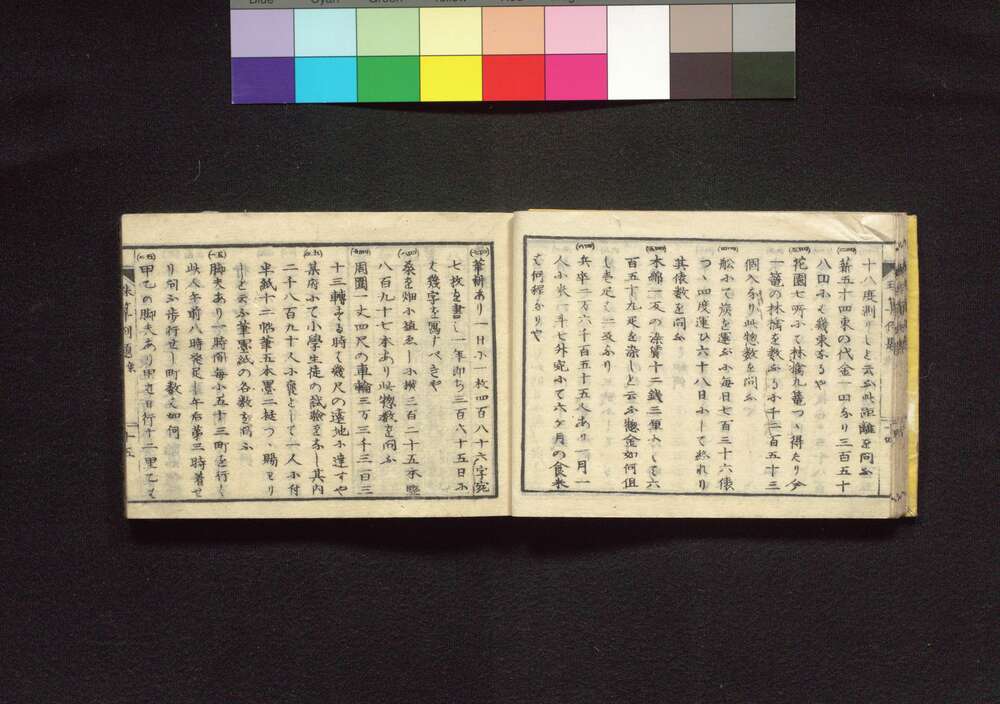 十八度測りしと云ふ此距離を問ふ
薪五十四束の代金一円なり三百五十
八円にて幾束なるや
花園七所にて林檎九籠つゝ得たり今
一籠の林檎を数ふるに千二百五十三
個入なり此惣数を問ふ
舩にて俵を運ぶに毎日七百三十六俵
つゝ四度運ひ六十八日にして終れり
其俵数を問ふ
木綿一反の染賃十二銭三厘にして六
百五十九疋を染しと云ふ惣金如何但
し壱疋て二反なり
兵卒二万六千百五十五人あり一月一
人に米一斗七升宛にて六ヶ月の食米
は何程なりや
筆耕あり一日に一枚四百八十六字宛
七枚を書し一年即ち三百六十五日に
は幾字を寫すべきや
桑を畑に植ゑしに横三百二十五本竪
八百九十七本あり此惣数を問ふ
周圍一丈四尺の車輪三万三千三百三
十三轉する時は幾尺の遠地に達すや
某府にて小學生徒の試驗をなし其内
二千八百九十人に褒として一人に付
半紙十二帖筆五本墨二挺つゝ賜へり
しと云ふ筆墨紙の各数を問ふ
脚夫あり一時間毎に五十三町を行く
此人午前八時発足し午后第三時着せ
り問ふ歩行せし町数は如何
甲乙の脚夫あり甲は日行十二里乙は